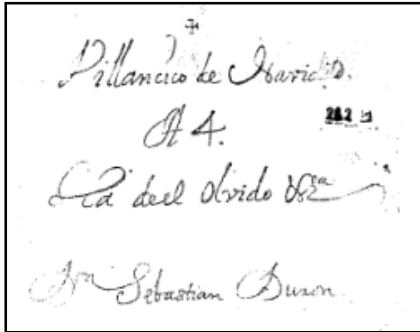 ✝
Villancico de Navid.
A 4.
del olvido
Dn Sebastian Duron.